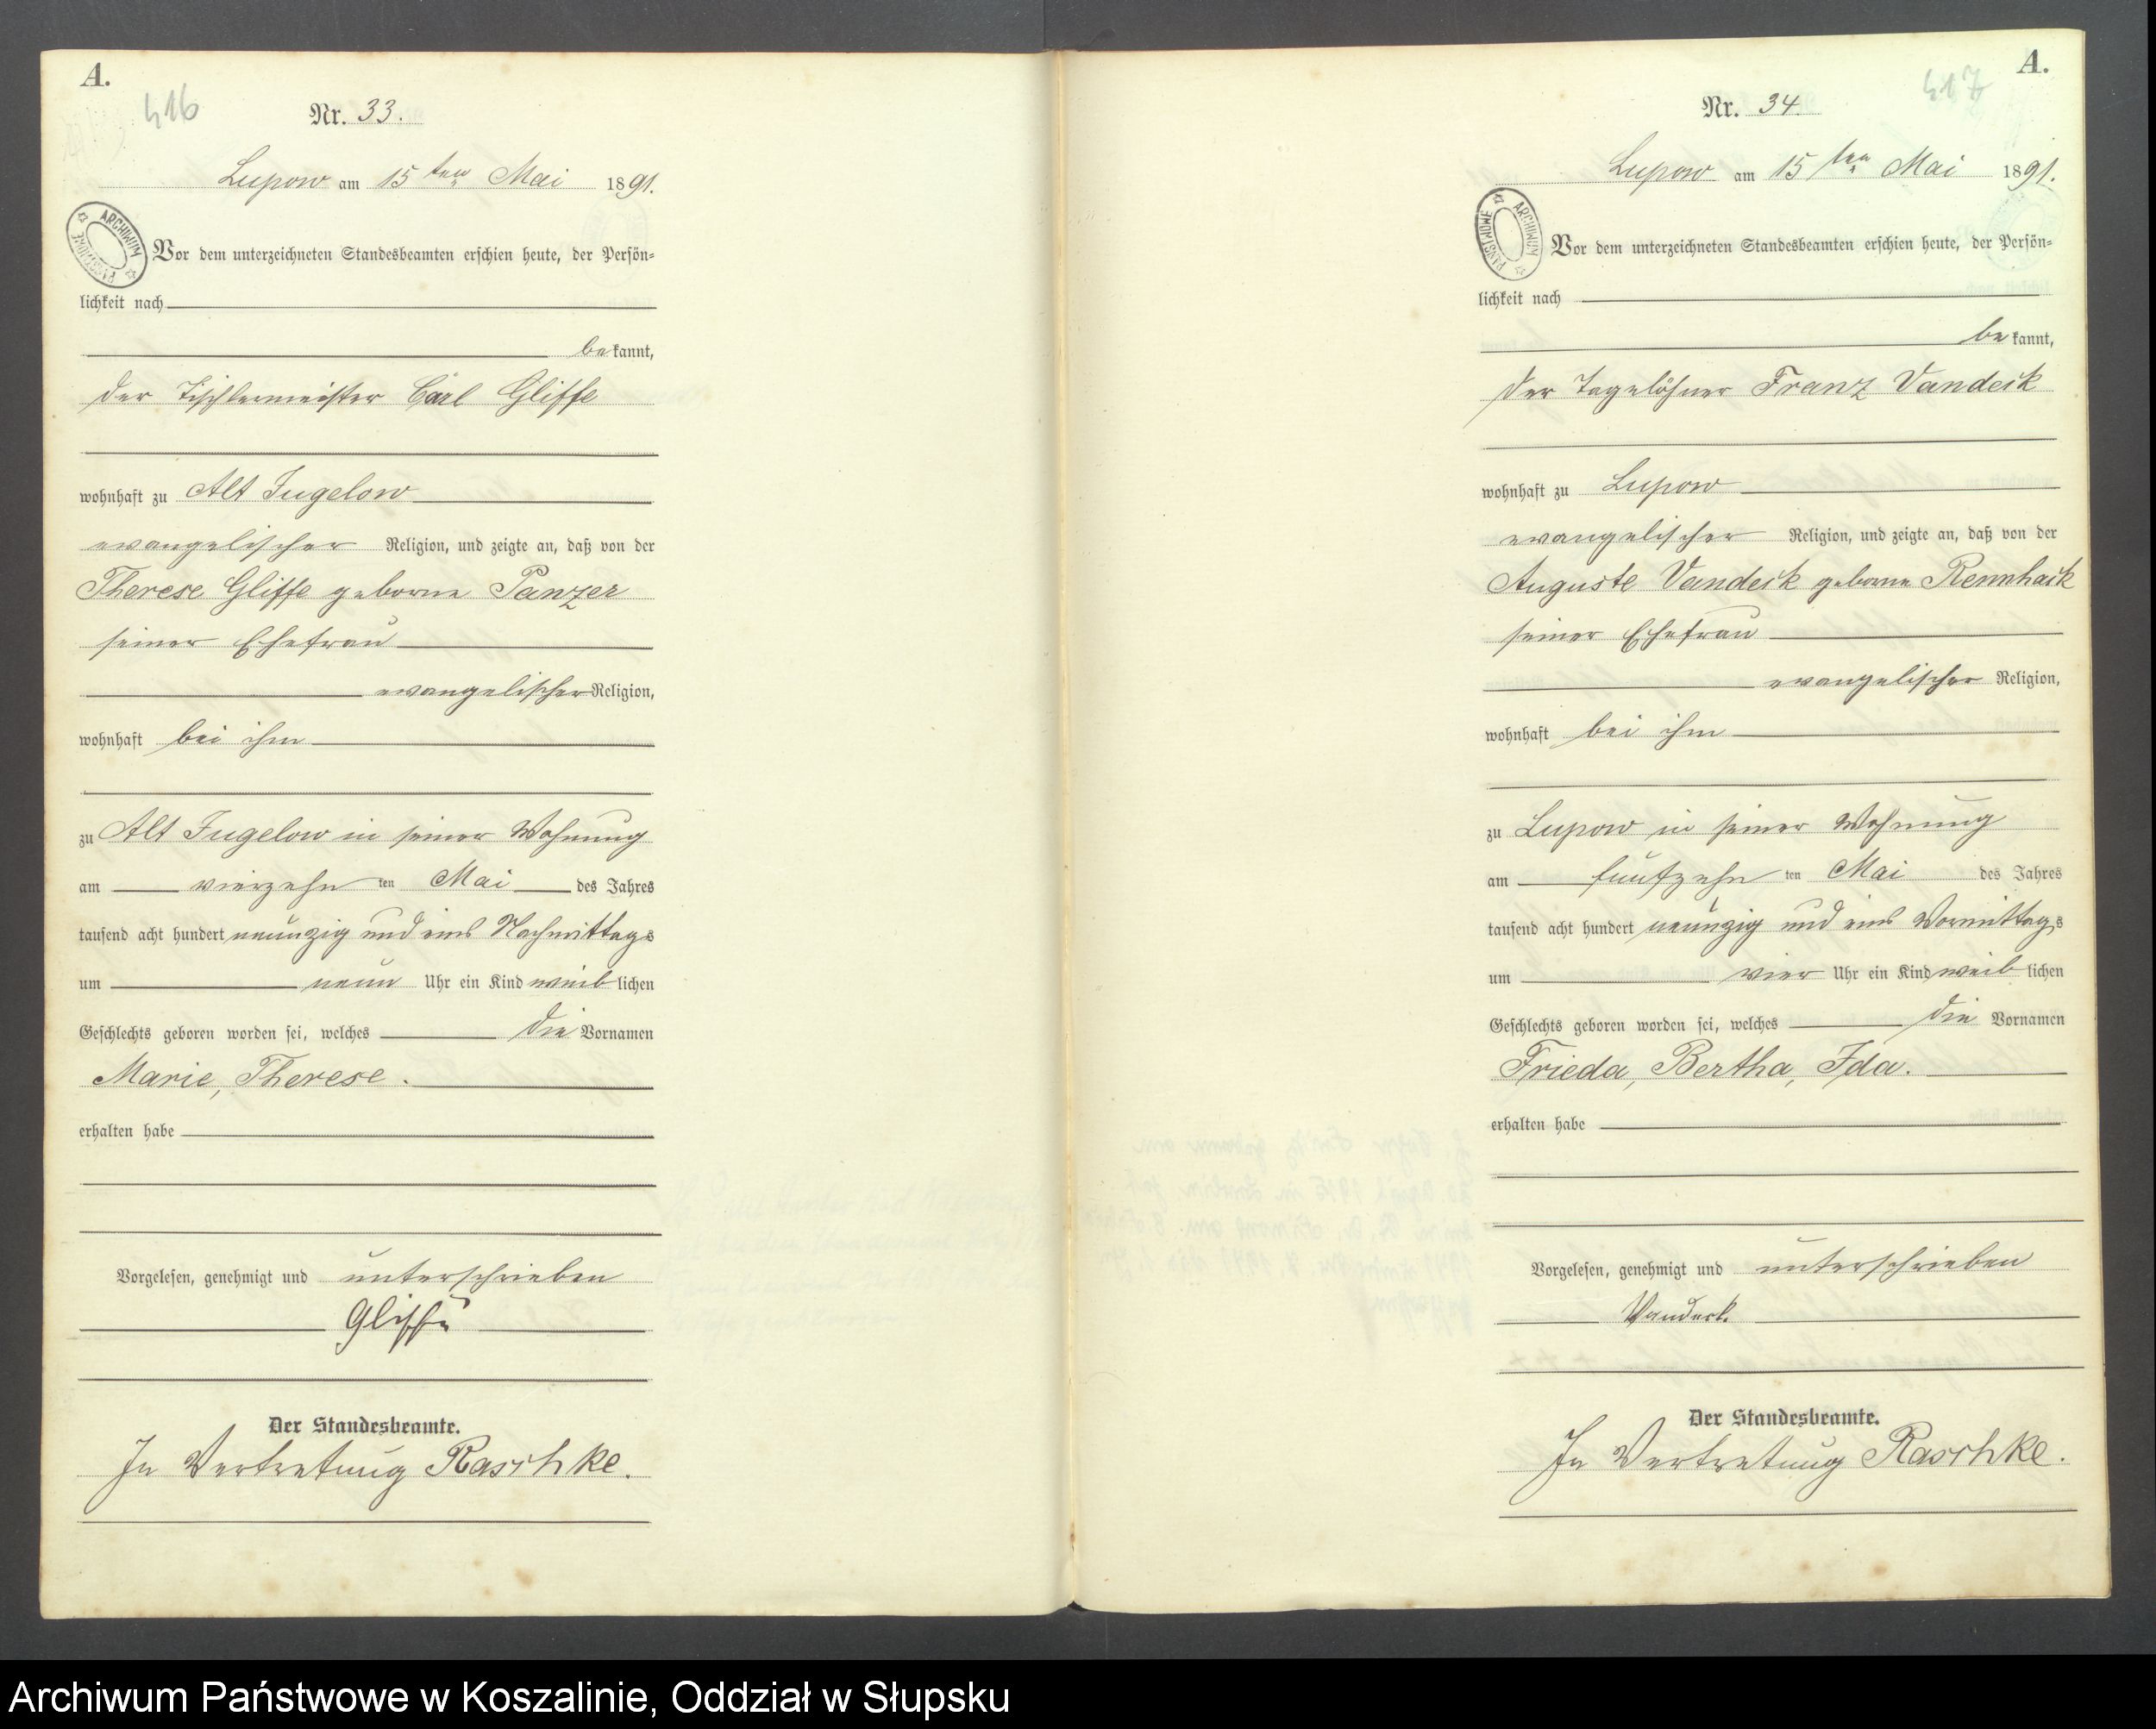 A.
416
Nr. 33.
Lupow am 15ten Mai 1891.
ARCHIWUM PAŃSTWOWE
Vor dem unterzeichneten Standesbeamten erschien heute, der Persön-
lichkeit nach
bekannt,
der Tischlermeister Carl Gliffe
wohnhaft zu Alt Jugelow
evangelischer Religion, und zeigte an, daß von der
Therese Gliffe geborne Panzer
seiner Ehefrau
evangelischer Religion,
wohnhaft bei ihm
zu Alt Jugelow in seiner Wohnung
am vierzehn ten Mai des Jahres
tausend acht hundert neunzig und eins Nachmittags
um neun Uhr ein Kind weiblichen
Geschlechts geboren worden sei, welches die Vornamen
Marie, Therese.
erhalten habe
Vorgelesen, genehmigt und unterschrieben
Der Standesbeamte.
In Vertretung Raschke.
A.
417
Nr. 34.
Lupow am 15ten Mai 1891.
ARCHIWUM PAŃSTWOWE
Vor dem unterzeichneten Standesbeamten erschien heute, der Persön-
lichkeit nach
bekannt,
der Tagelöhner Franz Vandeck
wohnhaft zu Lupow
evangelischer Religion, und zeigte an, daß von der
Auguste Vandeck geborne Rennhack
seiner Ehefrau
evangelischer Religion,
wohnhaft bei ihm
zu Lupow in seiner Wohnung
am fünfzehn ten Mai des Jahres
tausend acht hundert neunzig und eins Vormittags
um vier Uhr ein Kind weiblichen
Geschlechts geboren worden sei, welches die Vornamen
Frieda, Bertha, Ida.
erhalten habe
Vorgelesen, genehmigt und unterschrieben
Vandeck.
Der Standesbeamte.
In Vertretung Raschke.
Archiwum Państwowe w Koszalinie, Oddział w Słupsku